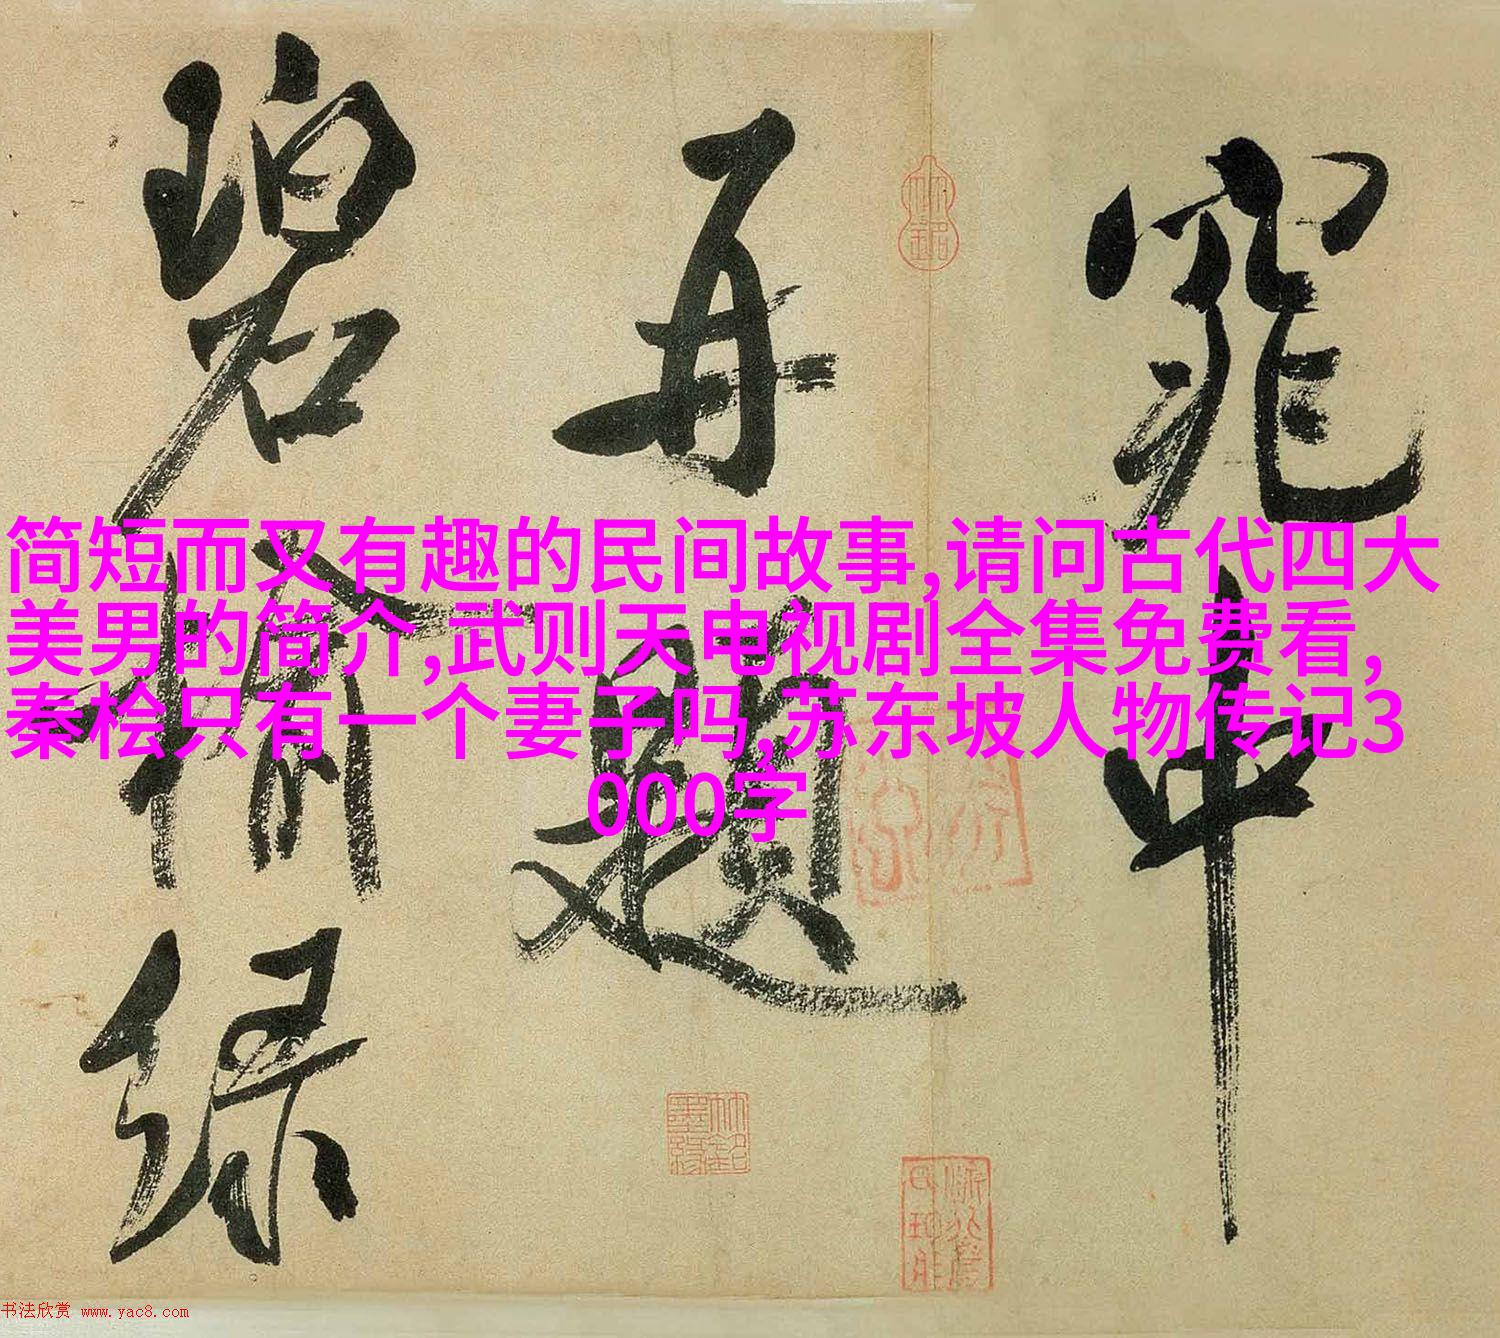 窕中
再題
碧榆綠
简短而又有趣的民间故事,请问古代四大
美男的简介,武则天电视剧全集免费看,
秦桧只有一个妻子吗,苏东坡人物传记3
000字
书法欣赏 www.yac8.com